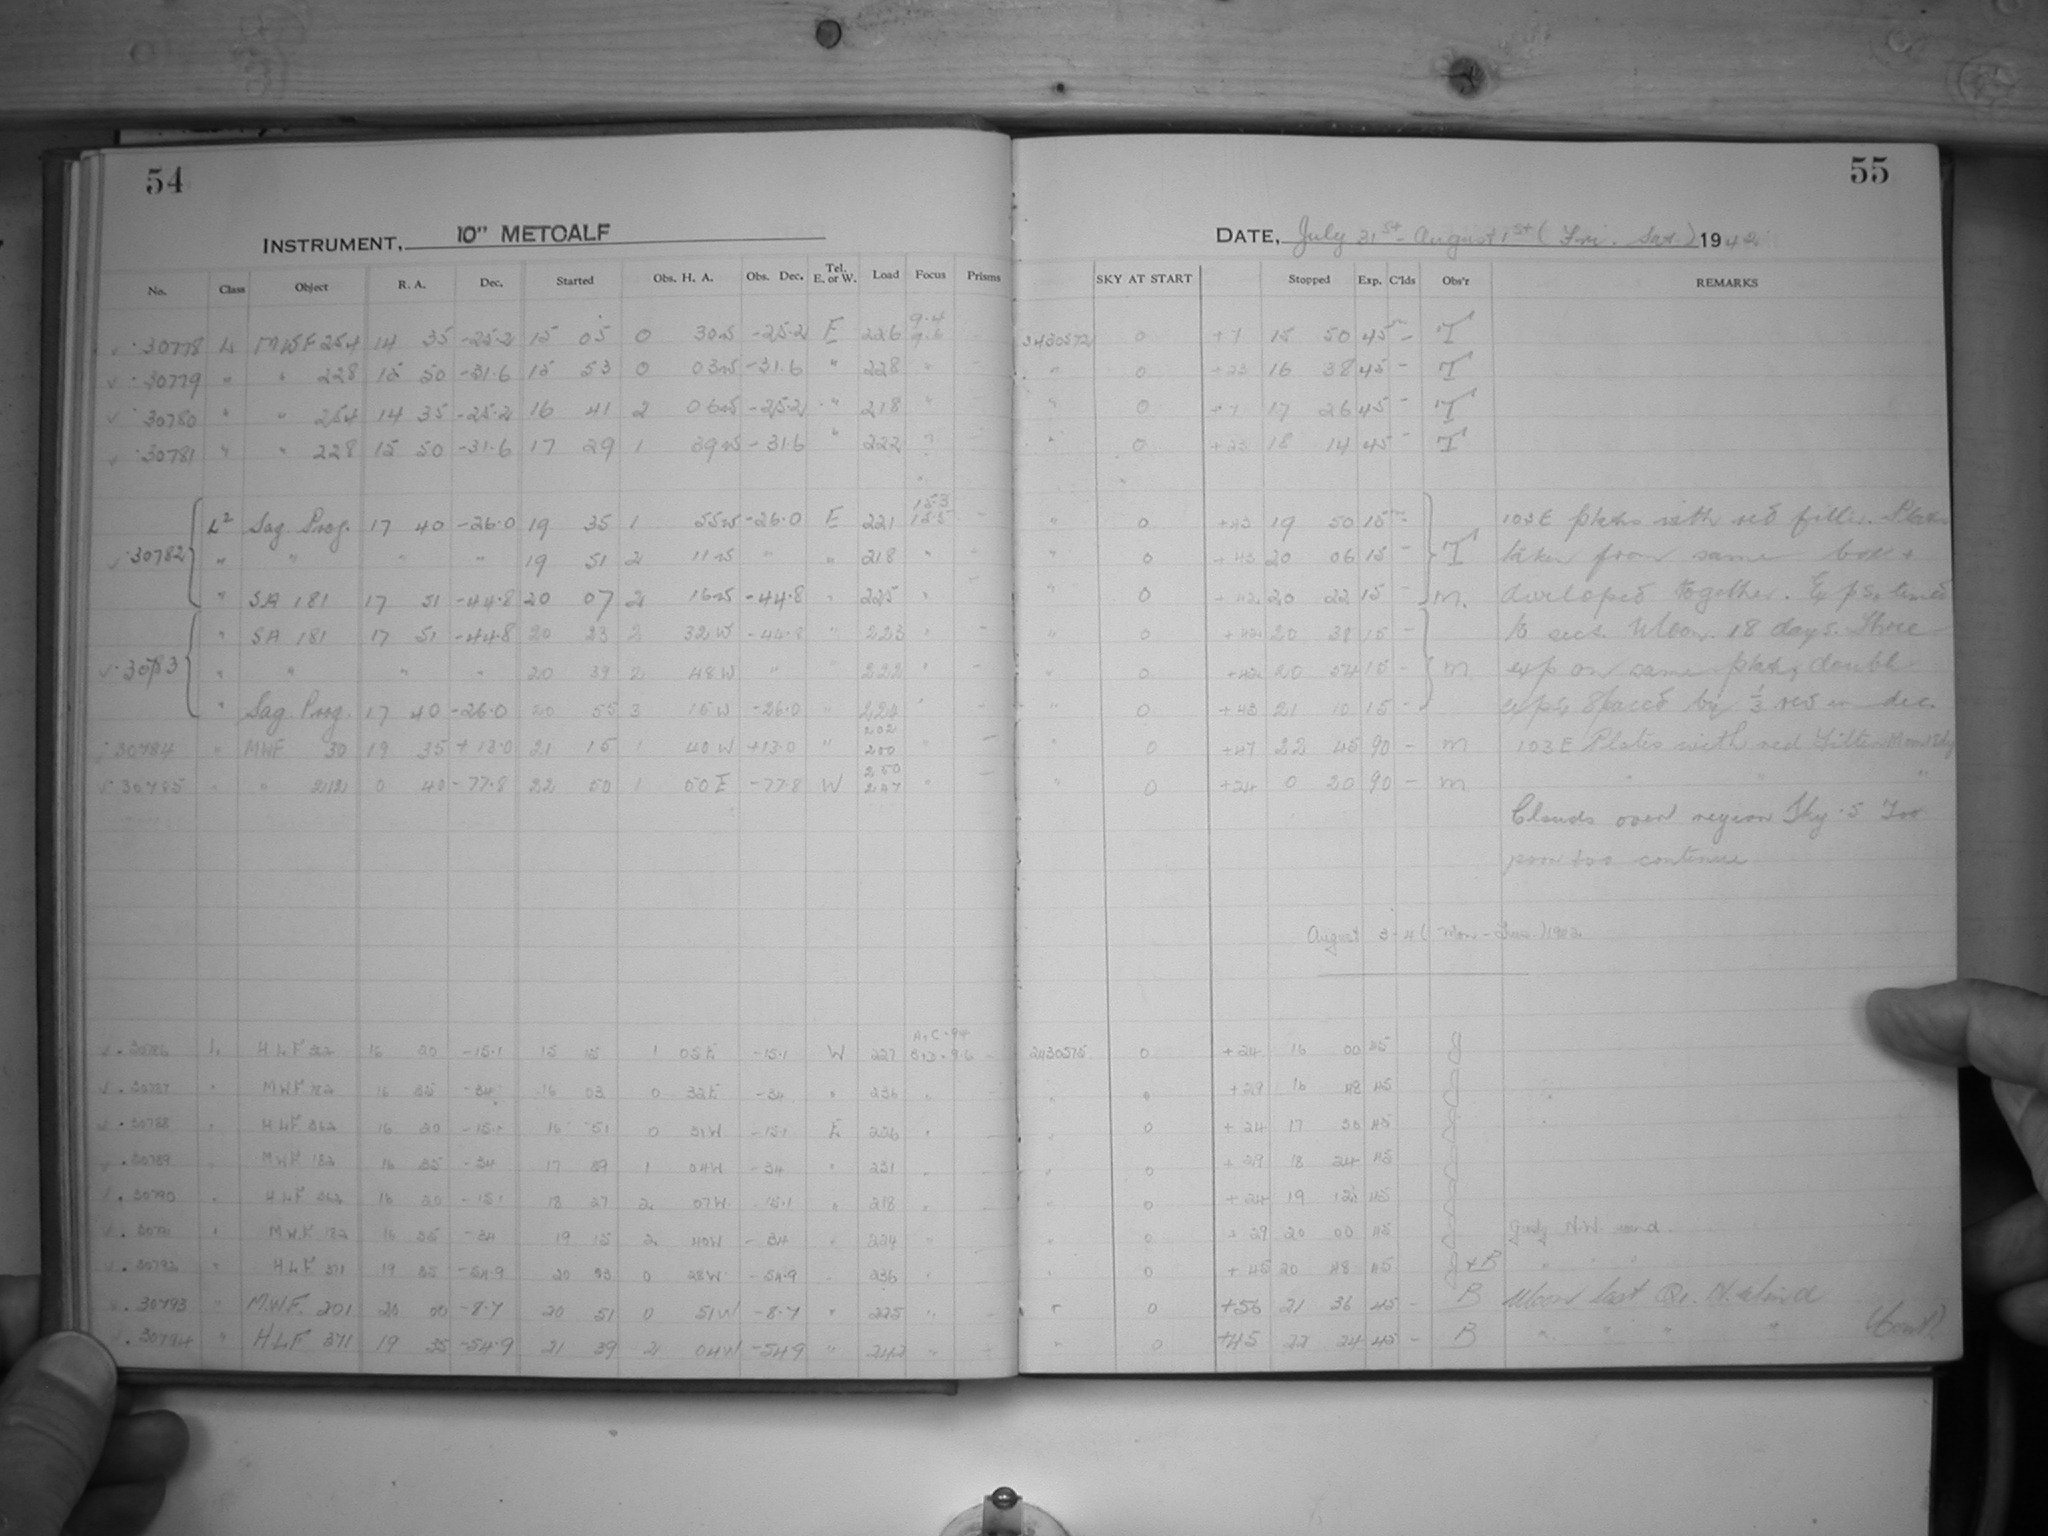 54
INSTRUMENT, 10" METCALF
No. Class Object R. A. Dec. Started Obs. H. A. Obs. Dec. Tel. E. or W. Load Focus Prisms
30778 L MWF 254 14 35 -25.2 15 05 0 30W -25.2 E 226 9.4 9.6
30779 " " 228 15 50 -31.6 15 53 0 03W -31.6 " 228 "
30780 " " 254 14 35 -25.2 16 41 2 06W -25.2 " 218 "
30781 " " 228 15 50 -31.6 17 29 1 39W -31.6 " 222 "
L2 Sag. Prog. 17 40 -26.0 19 35 1 55W -26.0 E 221 15.3 15.5
30782 " " " " 19 51 2 11W " " 218 "
" SA 181 17 51 -44.8 20 07 2 16W -44.8 " 225 "
" SA 181 17 51 -44.8 20 23 2 32W -44.8 " 223 "
30783 " " " " 20 39 2 48W " " 222 "
" Sag. Prog. 17 40 -26.0 20 55 3 15W -26.0 "
30784 " MWF 30 19 35 +13.0 21 15 1 40W +13.0 " 202 200 "
30785 " " 0 40 -77.8 22 50 1 00E -77.8 W 250 247 "
30786 L HLF 362 16 20 -15.1 15 15 1 05E -15.1 W 227
30787 " MWF 182 16 35 -34 16 03 0 32E -34 " 236 "
30788 " HLF 362 16 20 -15.1 16 51 0 31W -15.1 E 226 "
30789 " MWF 182 16 35 -34 17 39 1 04W -34 " 231 "
30790 " HLF 362 16 20 -15.1 18 27 2 07W -15.1 " 218 "
30791 " MWF 182 16 35 -34 19 15 2 40W -34 " 224 "
30792 " HLF 371 19 35 -54.9 20 03 0 28W -54.9 236 "
30793 " M.W.F. 201 20 00 -8.7 20 51 0 51W -8.7 " 225 "
30794 " HLF 371 19 35 -54.9 21 39 2 04W -54.9 " 242 "
55
DATE, July 31st - August 1st (Fri. Sat.) 1942
SKY AT START Stopped Exp. C'lds Obs'r REMARKS
2430572 0 +7 15 50 45m - T
" 0 +23 16 38 45 - T
" 0 +7 17 26 45 - T
" 0 +23 18 14 45 - T
" 0 +43 19 50 15m - 103E plates with red filter. Plates
" 0 +43 20 06 15 - T taken from same box +
" 0 +42 20 22 15 - M. developed together. Exps. timed
" 0 +42 20 38 15 - to secs. Moon 18 days. Three
" 0 +42 20 54 15 - M exp on same plate, double
" 0 +43 21 10 15 - exps spaced by 1/3 rev in dec.
" 0 +47 22 45 90 - M 103E Plates with red Filter
" 0 +24 0 20 90 - M " " "
Clouds over region Sky .5 Too
poor to continue
August 3-4 (Mon-Tues) 1942
2430575 0 +24 16 00 45
" 0 +29 16 48 45
" 0 +24 17 36 45
" 0 +29 18 24 45
" 0 +24 19 12 45
" 0 +29 20 00 45 Gusty N.W. wind.
" 0 +45 20 48 45 +B " " "
" 0 +56 21 36 45 - B Moon last Qr. N. Wind
" 0 +45 22 24 45 - B " " " " (Cont).